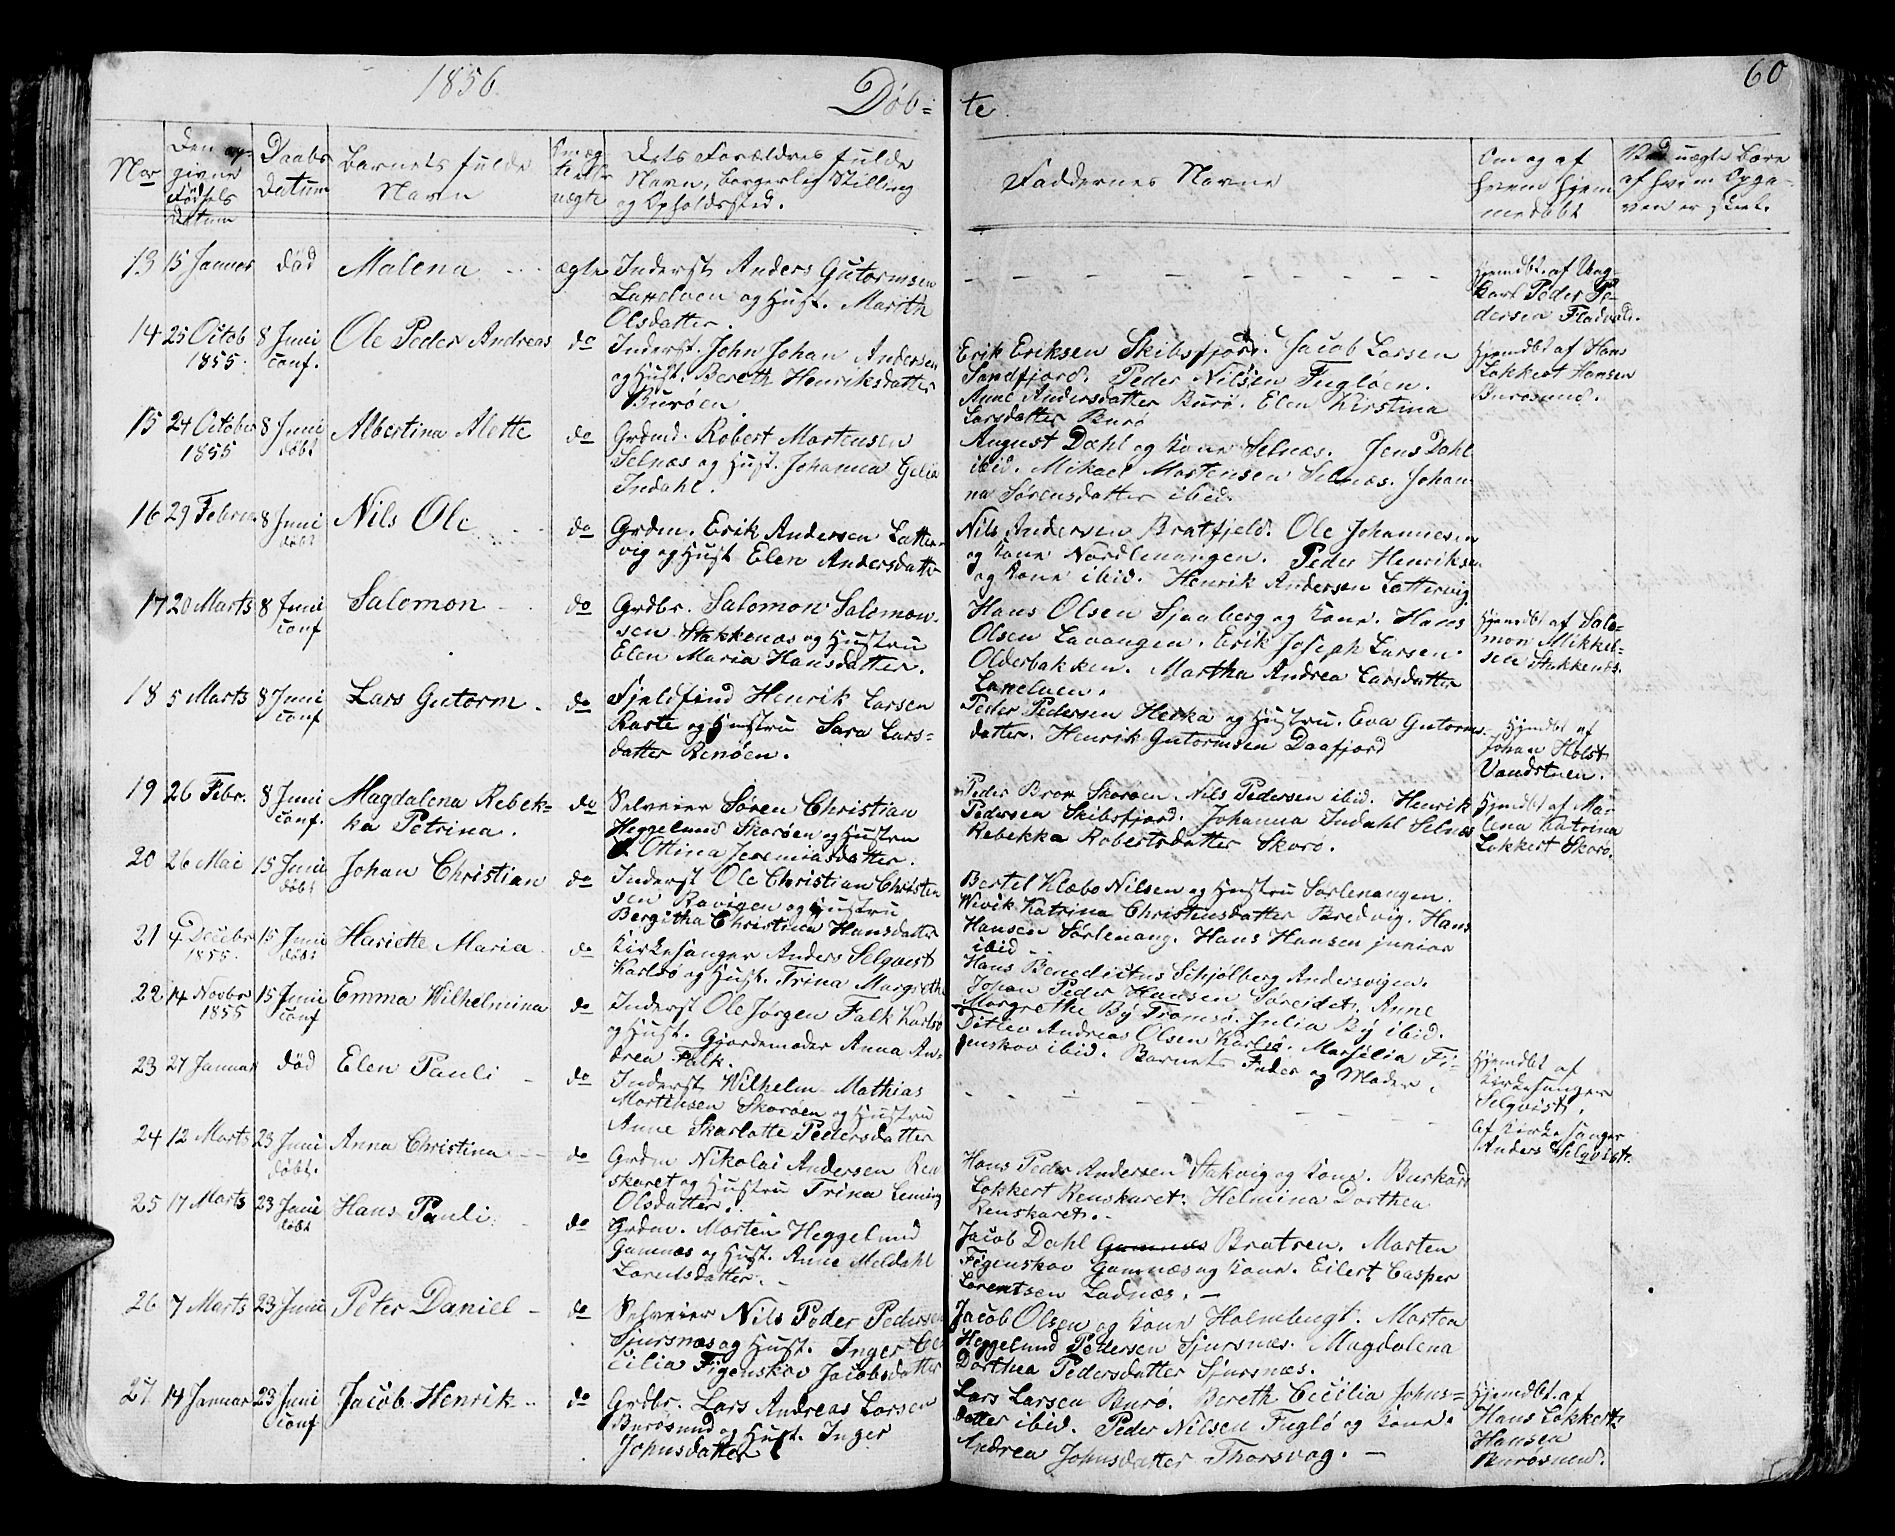 1856.
Døb=
te.
60
Nor
Den op-
givne
Fødsels
Datum
Daabs
Datum
Barnets fulde
Navn
Om æg
te eller
uægte
Dets Forældres fulde
Navn, borgerlig Stilling
og Opholdsted.
Faddernes Navne
Om og af
hvem hjem
medøbt
Ved uægte Børn
af hvem Opga-
ven er skeet.
13 15 Januar død Malena ægte
Inderst Anders Gutormsen
og Hust. Marith
Olsdatter.
Hjemdbt. af Ung-
karl Peder Pe-
dersen
14 25 Octob 8 Juni Ole Peder Andreas do
1855. conf.
Inderst. John Johan Andersen
og Hust. Bereth Henriksdatter
Burøen.
Erik Eriksen Skibsfjord. Jacob Larsen
Sandfjord. Peder Nilsen Fugløen.
Anne Andersdatter Burø. Elen Kirstina
Larsdatter Burø
Hjemdbt af Hans
Lokkert Hansen
Burøsund.
15 24 October 8 Juni Albertina Alette do
1855 døbt
Grdmd. Robert Mortensen
Selnæs og Hust. Johanna Gelia
Indahl.
August Dahl og Kone Selnæs. Jens Dahl
ibid. Mikael Mortensen Selnæs. Johan
na Sørensdatter ibid.
16 29 Februar 8 Juni Nils Ole do
døbt
Grdm. Erik Andersen Latter-
vig og Hust Elen Andersdatter
Nils Andersen Bratfjeld. Ole Johannesen
og Kone Nordlenangen. Peder Henriksen
og Kone ibid. Henrik Andersen Lattervig
17 20 Marts 8 Juni Salomon do
conf
Grdbr. Salomon Salomon-
sen Stakkenæs og Hustru
Elen Maria Hansdatter.
Hans Olsen Sjaaberg og Kone. Hans
Olsen Lavangen. Erik Joseph Larsen
Olderbakken. Martha Andrea Larsdatter
Hjemdbt af Salo-
mon Mikkel-
sen Stakkenæs.
18 5 Marts 8 Juni Lars Gutorm do
conf
Fjeldfind Henrik Larsen
Raste og Hustru Sara Lars-
datter Renøen.
Peder Pedersen Herka og Hustru. Eva Gutorms-
datter. Henrik Gutormsen Daafjord
Hjmdbt af
Johan Holst
Vandstuen.
19 26 Febr. 8 Juni Magdalena Rebek- do
conf. ka Petrina.
Selveier Søren Christian
Heggelund Skorøen og Hustru
Ottina Jeremiasdatter.
Peder Brox Skorøen. Nils Pedersen ibid. Henrik
Pedersen Skibsfjord. Johanna Indahl Selnæs
Rebekka Robertsdatter Skorø.
Hjemdbt af Ma-
lena Katrina
Lokkert Skorø.
20 26 Mai 15 Juni Johan Christian do
døbt
Inderst Ole Christian Christen
sen og Hustru
Bergitha Christina Hansdatter
Bertel Klæbo Nilsen og Hustru Sørlenangen.
Wivik Katrina Christensdatter Bredvig. Hans
Hansen Sørlenang. Hans Hansen junior
ibid.
21 4 Decebr 15 Juni Hariette Maria do
1855. døbt
Kirkesanger Anders Selqvist
Karlsø og Hust. Trina Margrethe
Hans Benedictus Schjølberg Andersvigen.
Johan Peder Hansen Søreidet. Anne
Margrethe By Tromsø. Julia By ibid.
22 14 Novbr 15 Juni Emma Wilhelmina do
1855 conf
Inderst Ole Jørgen Falk Karlsø
og Hust. Gjordemoder Anna An-
drea Falk.
Ditlev Andreas Olsen Karlsø. Marselia Fi-
genskov ibid. Barnets Fader og Moder.
Hjemdbt af
Kirkesanger
Selqvist.
23 27 Januar død Elen Pauli do
Inderst Wilhelm Mathias
Mortensen Skorøen og Hustru
Anne Skarlotte Pedersdatter
af Kirkesanger
Anders Selqvist.
24 12 Marts 23 Juni Anna Christina do
døbt.
Grdm Nikolai Andersen Ren
skaret og Hustru Trina Leming
Olsdatter.
Hans Peder Andersen Stakvig og Kone. Burkard
Lokkert Renskaret. Helmina Dorthea
Renskaret.
25 17 Marts 23 Juni Hans Pauli do
døbt
Grdm. Morten Heggelund
Gamnæs og Hust. Anne Meldahl
Lorentsdatter.
Jacob Dahl Gamnæs Bratren. Morten
Figenskov Gamnæs og Kone. Eilert Casper
Lorentsen Ladnæs.
26 7 Marts 23 Juni Peter Daniel do
Selveier Nils Peder Pedersen
Sjursnæs og Hust. Inger Ce
cilia Figenskov Jacobsdatter
Jacob Olsen og Kone Holmbugt. Morten
Heggelund Pettersen Sjursnæs. Magdalena
Dorthea Pedersdatter Sjursnæs.
27 14 Januar 23 Juni Jacob Henrik do
conf
Grdbr. Lars Andreas Larsen
Burøsund og Hust. Inger
Johnsdatter
Lars Larsen Burø. Bereth Cecilia Johns=
datter ibid. Peder Nilsen Fuglø og Kone.
Andrea Johnsdatter Thorsvog.
Hjemdbt. af
Hans Lokkert
Hansen
Burøsund.